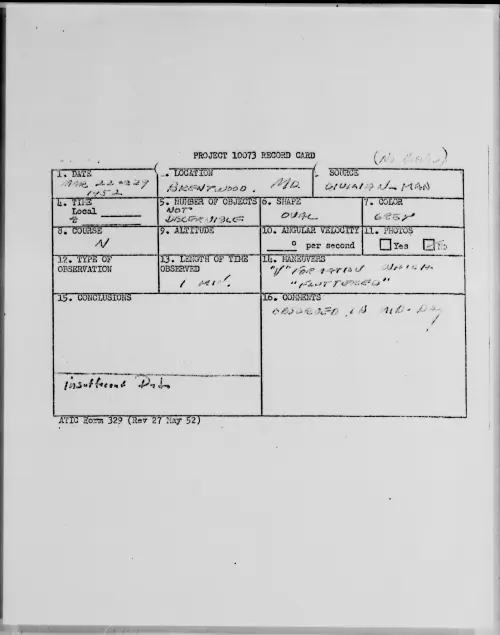 PROJECT 10073 RECORD CARD
1. DATE
MAR 22 or 29
1952
2. LOCATION
BRENTWOOD, MD.
SOURCE
CIVILIAN - MAN
4. TIME
Local
Z
5. NUMBER OF OBJECTS
NOT
DISCERNIBLE
6. SHAPE
OVAL
7. COLOR
GREY
8. COURSE
N
9. ALTITUDE
10. ANGULAR VELOCITY
° per second
11. PHOTOS
Yes No
12. TYPE OF
OBSERVATION
13. LENGTH OF TIME
OBSERVED
1 MIN.
14. MANEUVERS
"V" FORMATION WHICH
"FLUTTERED"
15. CONCLUSIONS
Insufficient Data
16. COMMENTS
OBSERVED IN MID-DAY
ATIC Form 329 (Rev 27 May 52)